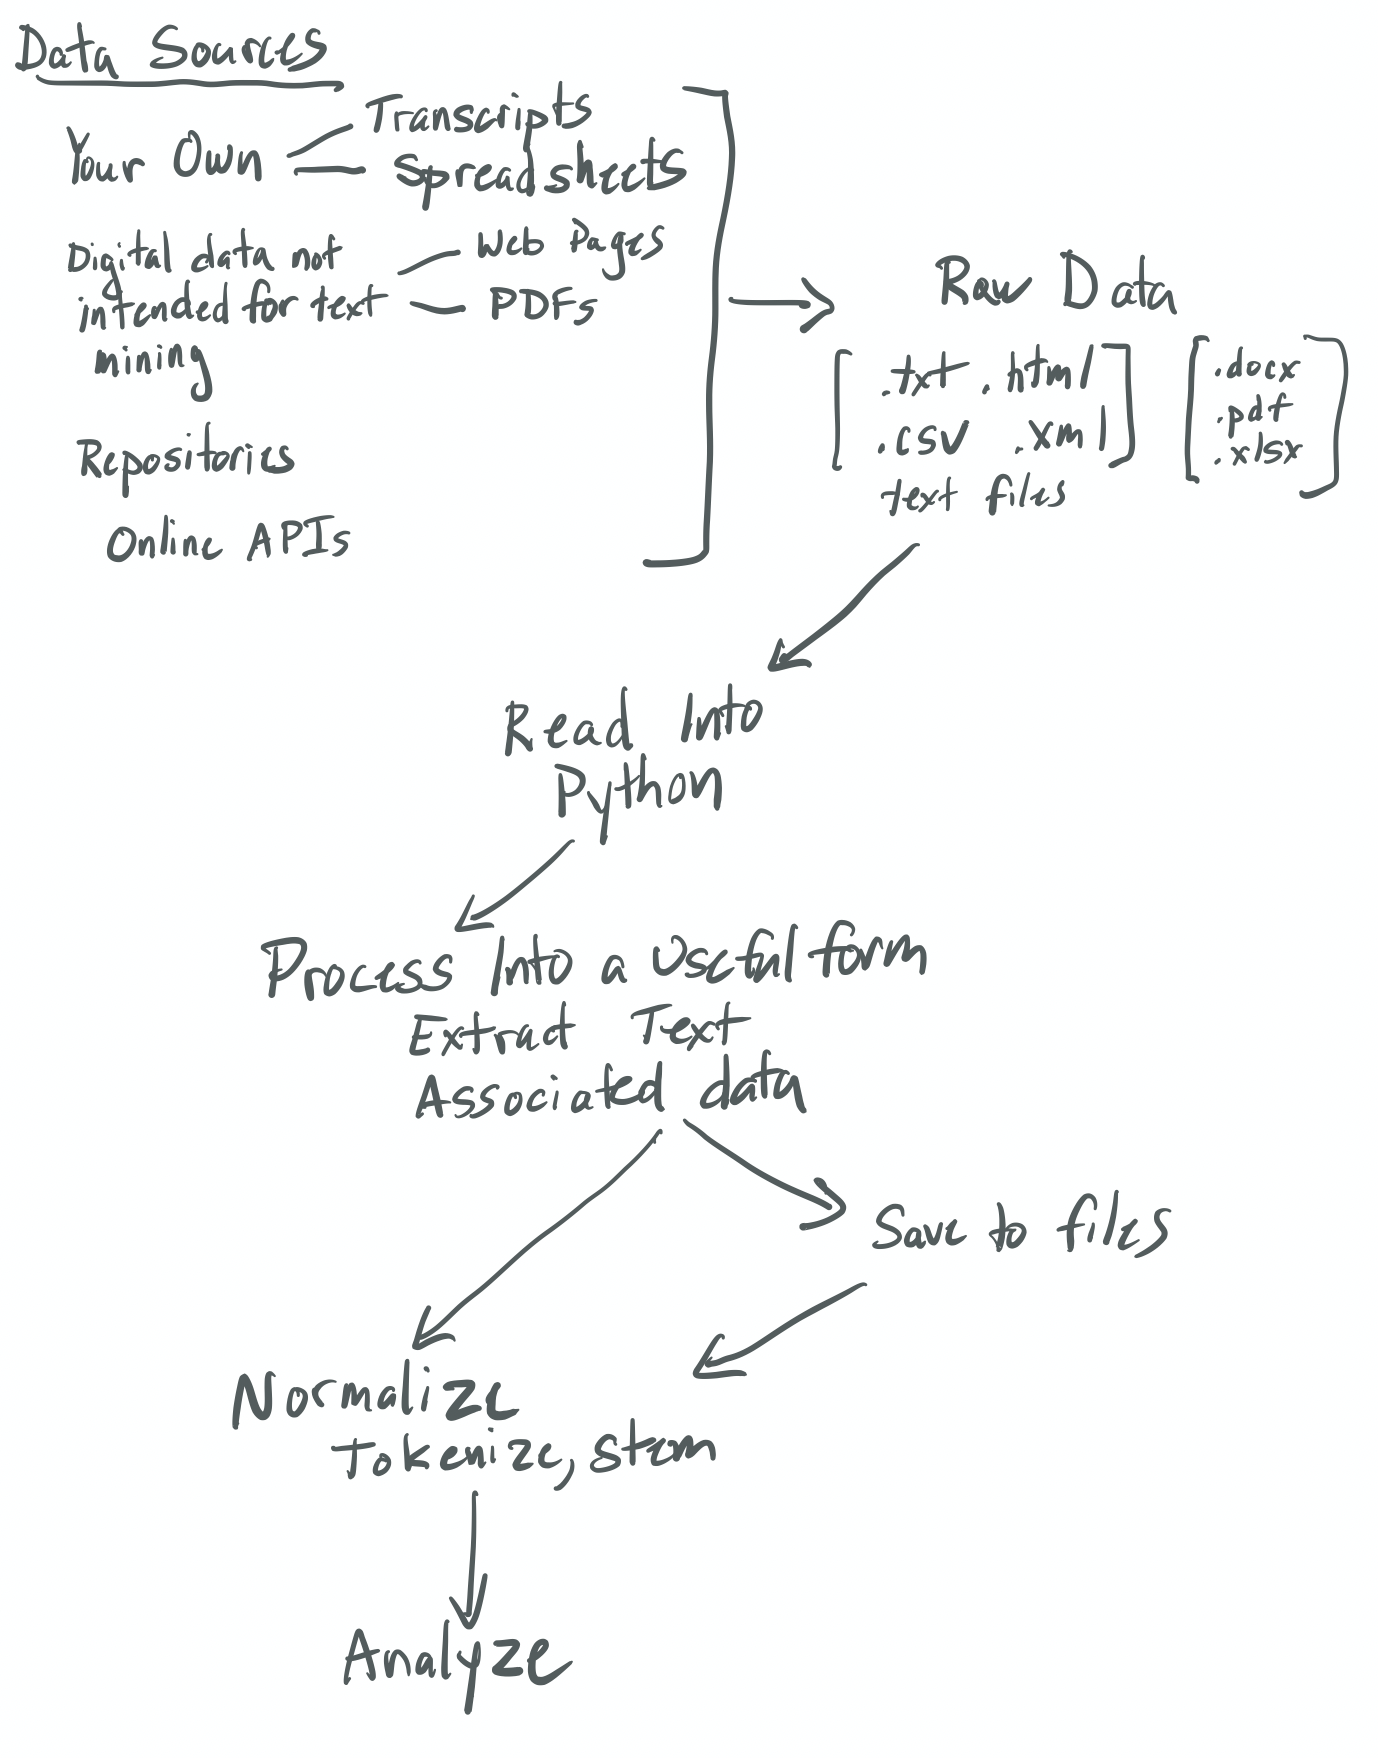 Data Sources
Your Own
Transcripts
Spreadsheets
Digital data not
intended for text
mining
Web Pages
PDFs
Repositories
Online APIs
Raw Data
.txt .html
.csv .xml
text files
.docx
.pdf
.xlsx
Read Into
Python
Process Into a Useful form
Extract Text
Associated data
Save to files
Normalize
Tokenize, stem
Analyze